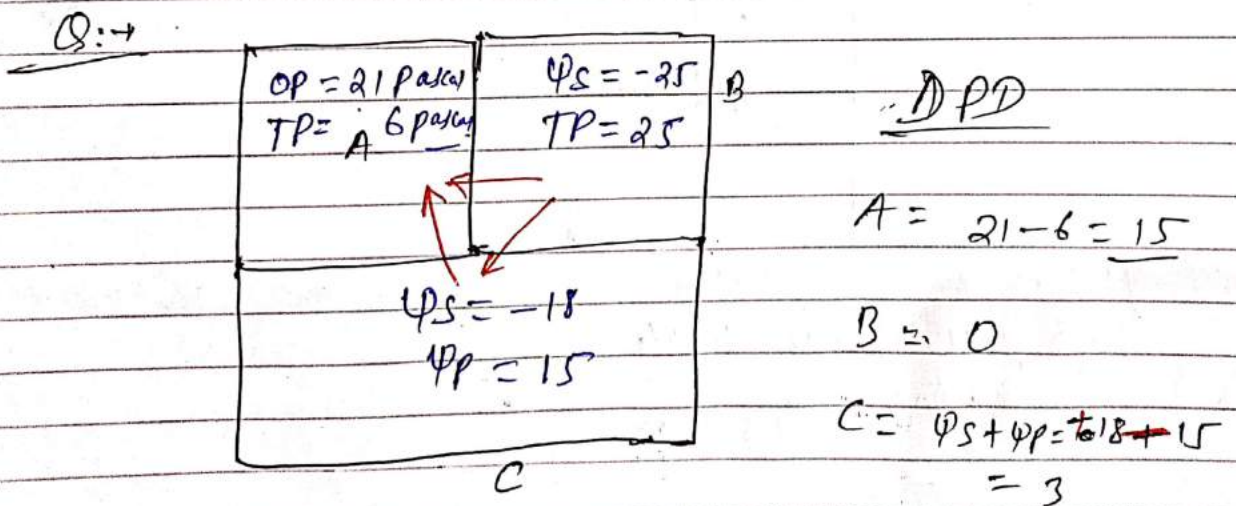 Q:→
OP = 21 Pascal
TP = 6 Pascal
A
ΨS = -25
TP = 25
B
ΨS = -18
ΨP = 15
C
DPD
A = 21 - 6 = 15
B = 0
C = ΨS + ΨP = 18 + 15
= 3